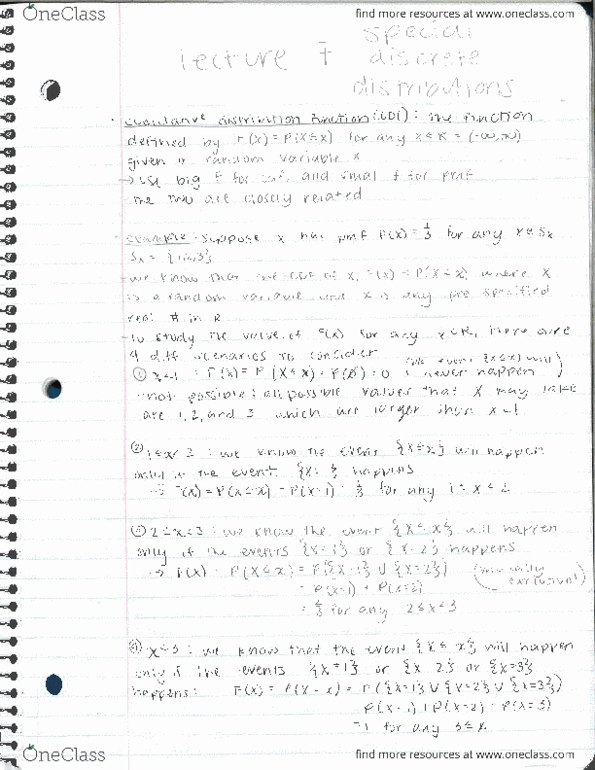 OneClass
find more resources at www.oneclass.com
special
lecture 7 discrete
distributions
cumulative distribution function (CDF): the function
defined by F(x) = P(X ≤ x) for any x ∈ R = (-∞, ∞)
given a random variable X
→ use big F for cdf, and small f for pmf
the two are closely related
example: suppose X has pmf P(x) = 1/3 for any x ∈ Sx
Sx = {1,2,3}
- we know that the CDF of X, F(x) = P(X ≤ x) where X
is a random variable and x is any pre specified
real # in R
- to study the value of F(x) for any x ∈ R, there are
4 diff scenarios to consider
① x<1 F(x) = P(X ≤ x) = P(∅) = 0 (the event {X≤x} will never happen)
not possible: all possible values that X may take
are 1, 2, and 3 which are larger than x<1
② 1≤x<2: we know the event {X≤x} will happen
only if the event {X=1} happens
→ F(x) = P(X≤x) = P(X=1) = 1/3 for any 1≤x<2
③ 2≤x<3: we know the event {X≤x} will happen
only if the events {X=1} or {X=2} happens
→ F(x) = P(X≤x) = P({X=1} ∪ {X=2}) (mutually exclusive)
= P(X=1) + P(X=2)
= 2/3 for any 2≤x<3
④ x≥3: we know that the event {X≤x} will happen
only if the events {X=1} or {X=2} or {X=3}
happens: F(x) = P(X≤x) = P({X=1} ∪ {X=2} ∪ {X=3})
P(X=1) + P(X=2) + P(X=3)
=1 for any 3≤x
OneClass
find more resources at www.oneclass.com